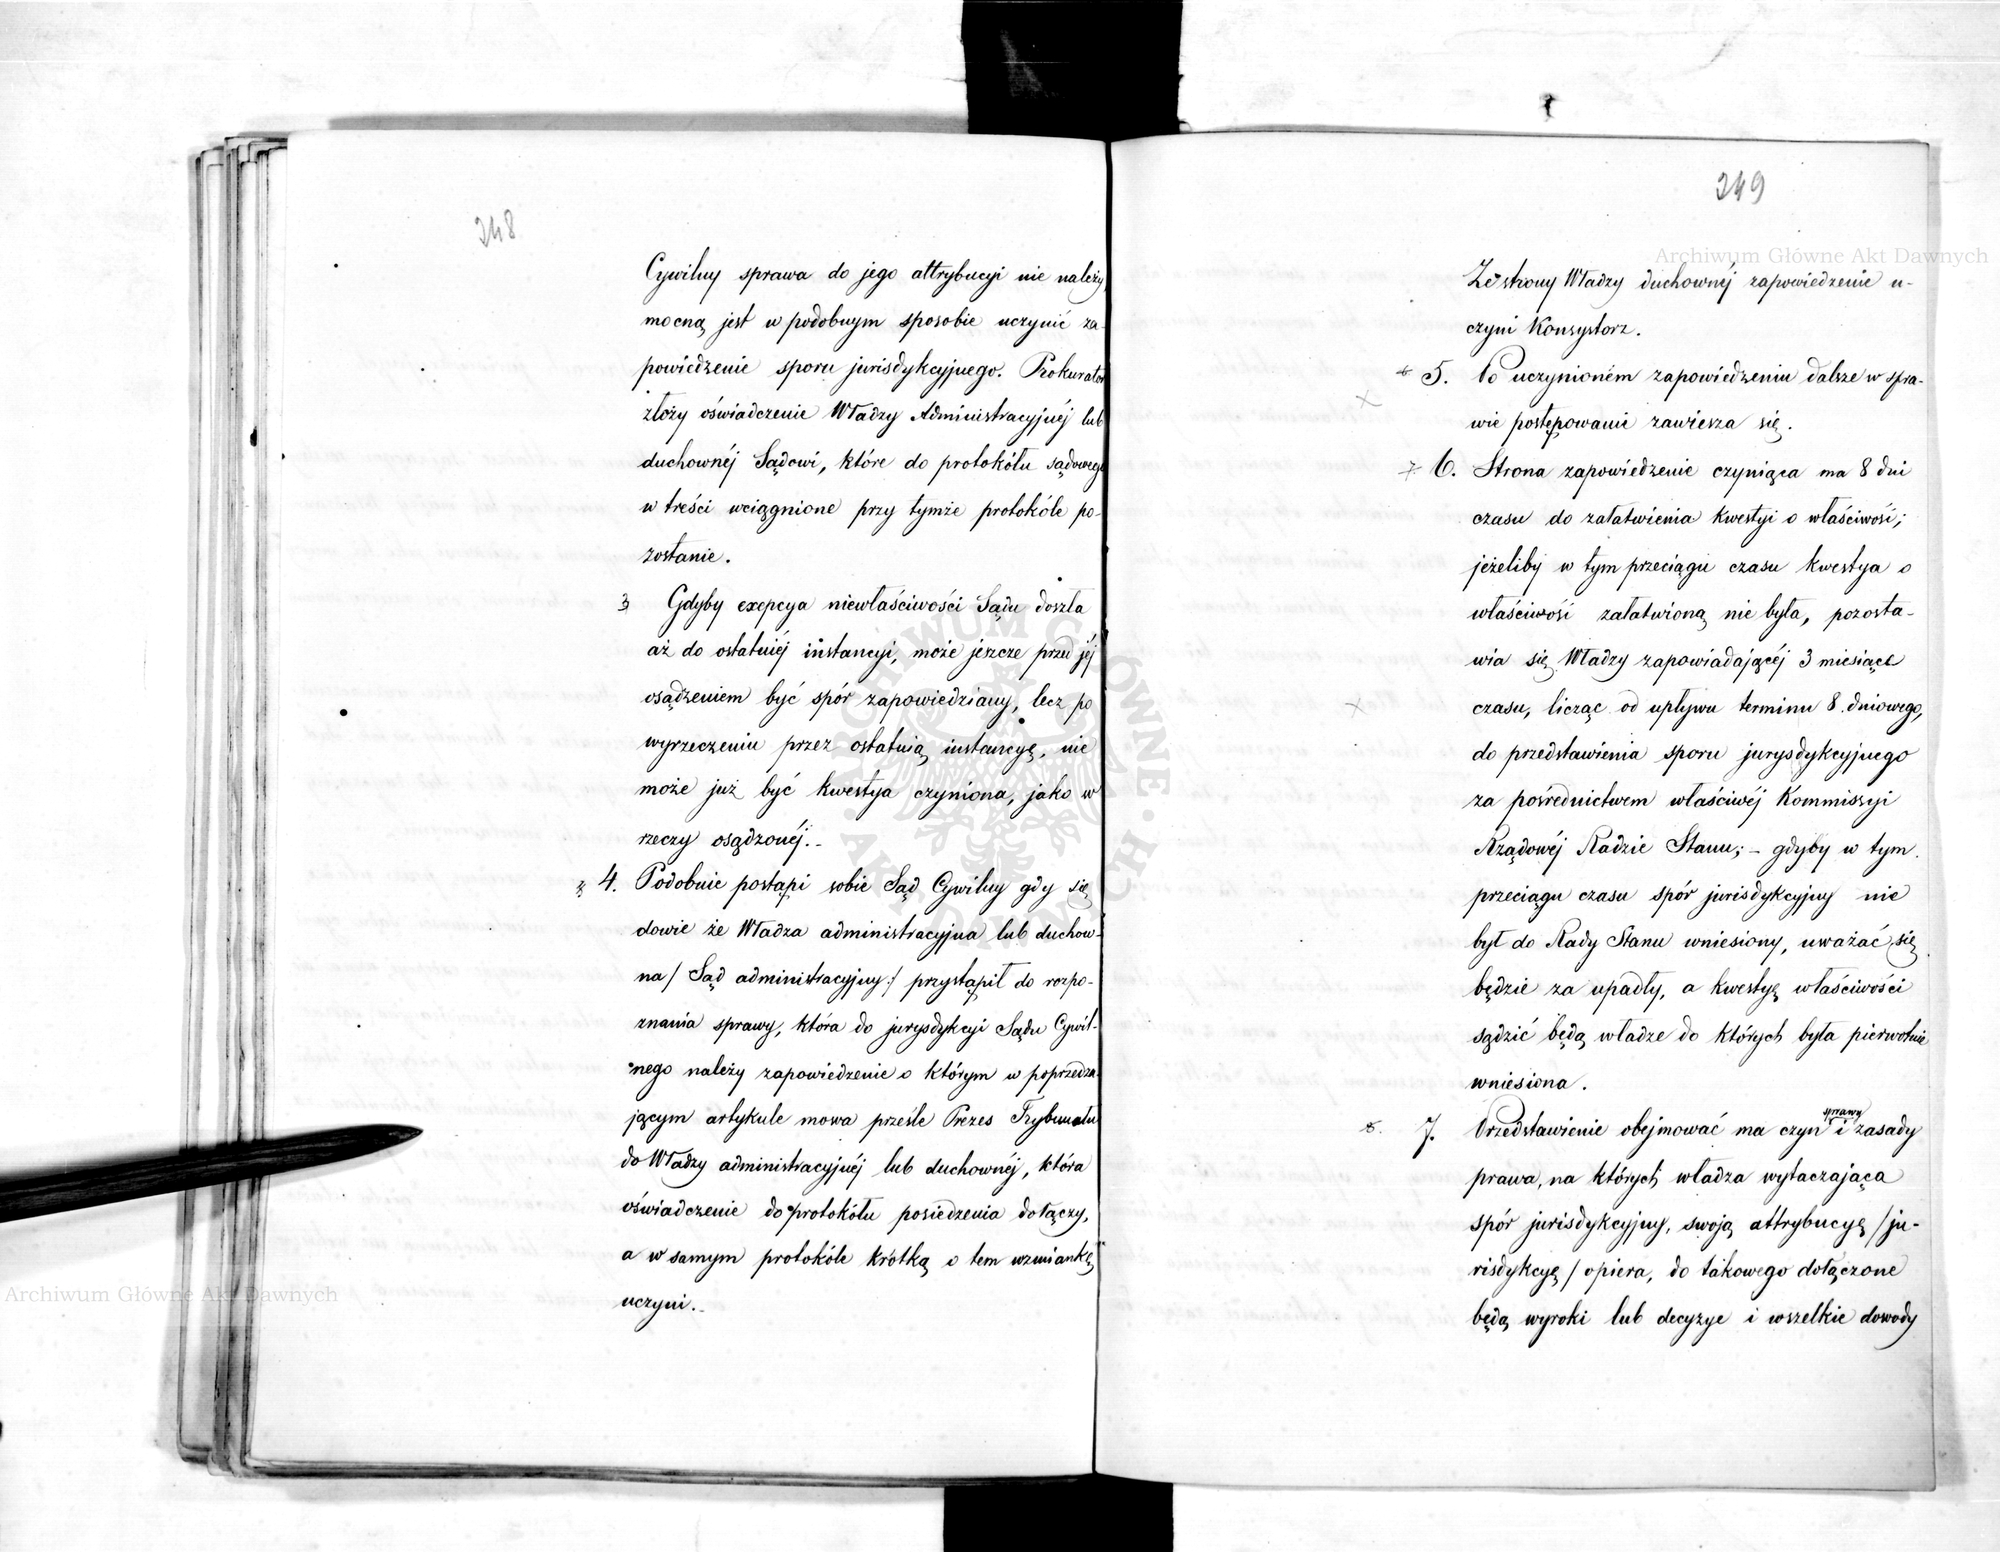 248
Cywilny sprawa do jego attrybucyi nie należy
mocną jest w podobnym sposobie uczynić za-
powiedzenie sporu jurisdykcyjnego. Prokurator
złoży oświadczenie Władzy Administracyjnéj lub
duchownéj Sądowi, które do protokółu sądowego
w treści wciągnione przy tymże protokóle po-
zostanie.
3 Gdyby exepcya niewłaściwości Sądu doszła
aż do ostatniéj instancyi, może jeszcze przed jéj
osądzeniem być spór zapowiedziany, lecz po
wyrzeczeniu przez ostatnią instancyę, nie
może już być kwestya czyniona, jako w
rzeczy osądzonéj.-
4. Podobnie postąpi sobie Sąd Cywilny gdy się
dowie że Władza administracyjna lub duchow-
na / Sąd administracyjny:/ przystąpił do rozpo-
znania sprawy, która do jurysdykcyi Sądu Cywil-
nego należy zapowiedzenie o którym w poprzedza-
jącym artykule mowa prześle Prezes Trybunału
do Władzy administracyjnéj lub duchownéj, która
oświadczenie do protokółu posiedzenia dołączy,
a w samym protokóle krótką o tem wzmiankę
uczyni.-
249
Ze strony Władzy duchownéj zapowiedzenie u-
czyni Konsystorz.
5. Po uczynioném zapowiedzeniu dalsze w spra-
wie postępowanie zawiesza się.
7 6. Strona zapowiedzenie czyniąca ma 8 dni
czasu do załatwienia kwestyi o właściwość;
jeżeliby w tym przeciągu czasu kwestya o
właściwość załatwioną nie była, pozosta-
wia się Władzy zapowiadającéj 3 miesiące
czasu, licząc od upływu terminu 8. dniowego,
do przedstawienia sporu jurysdykcyjnego
za pośrednictwem właściwéj Kommissyi
Rządowéj Radzie Stanu; - gdyby w tym
przeciągu czasu spór jurisdykcyjny nie
był do Rady Stanu wniesiony, uważać się
będzie za upadły, a kwestyę właściwości
sądzić będą władze do których była pierwotnie
wniesiona.
sprawy
8. 7. Przedstawienie obejmować ma czyn i zasady
prawa, na których władza wytaczająca
spór jurisdykcyjny, swoją attrybucyę / ju-
risdykcyę / opiera, do takowego dołączone
będą wyroki lub decyzye i wszelkie dowody
Archiwum Główne Akt Dawnych
Archiwum Główne Akt Dawnych